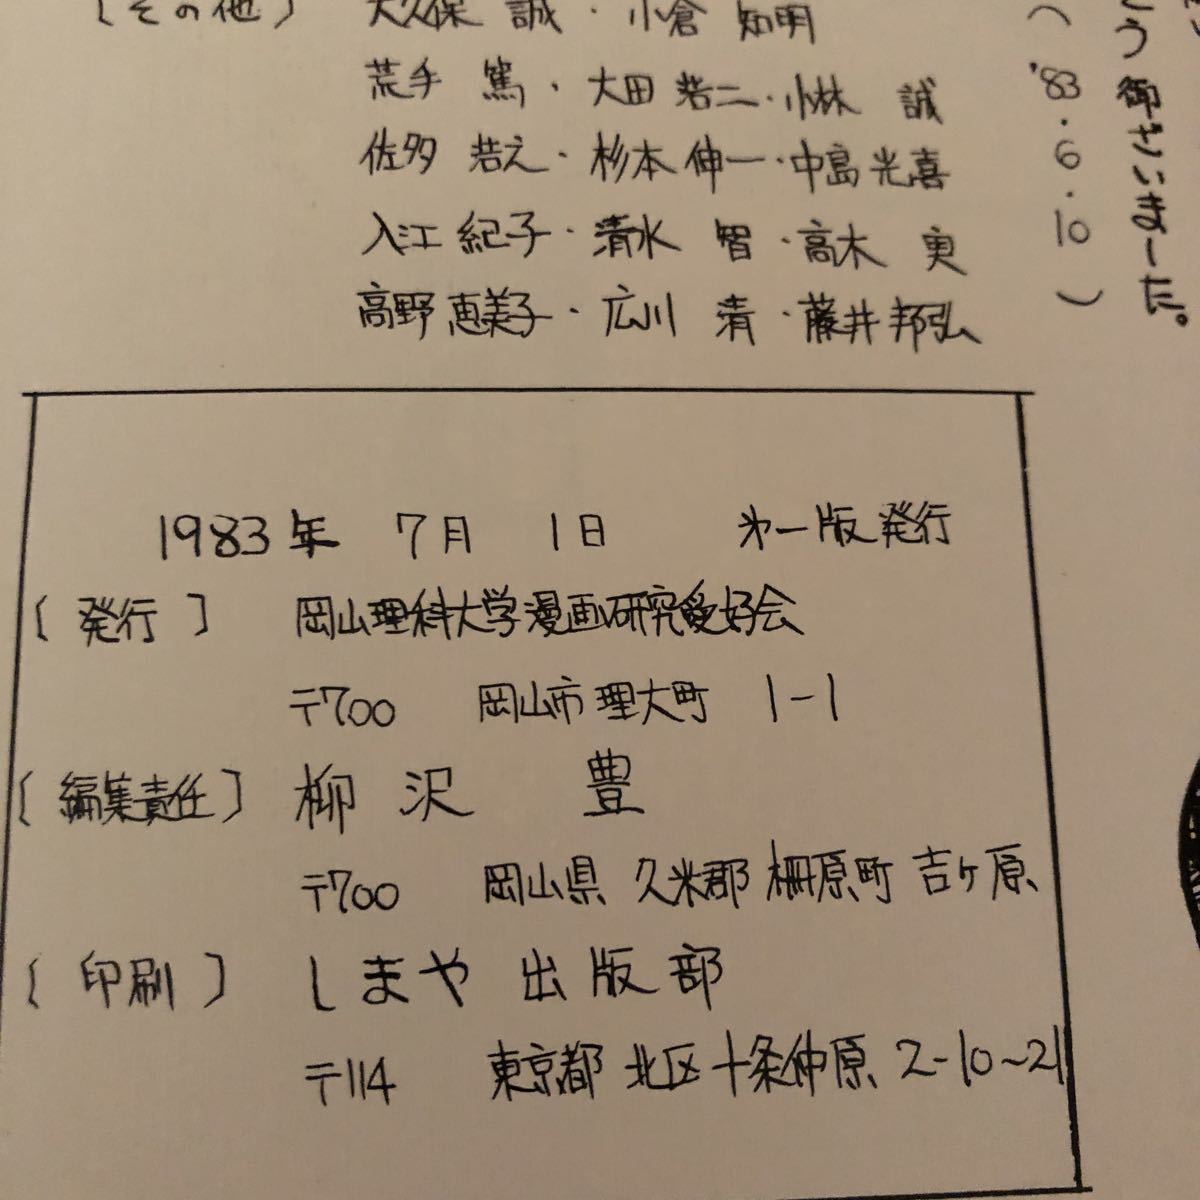 〔その他〕 大久保 誠・小倉 知明
荒手 篤・大田 浩二・小林 誠
佐多 浩之・杉本 伸一・中島 光喜
入江 紀子・清水 智・高木 実
高野 恵美子・広川 清・藤井 邦弘
とう御ざいました。
（'83・6・10）
1983年 7月 1日 㐧一版発行
〔発行〕 岡山理科大学漫画研究愛好会
〒700 岡山市理大町 1-1
〔編集責任〕 柳沢 豊
〒700 岡山県 久米郡 柵原町 吉ヶ原
〔印刷〕 しまや 出版部
〒114 東京都 北区 十条仲原 2-10~21